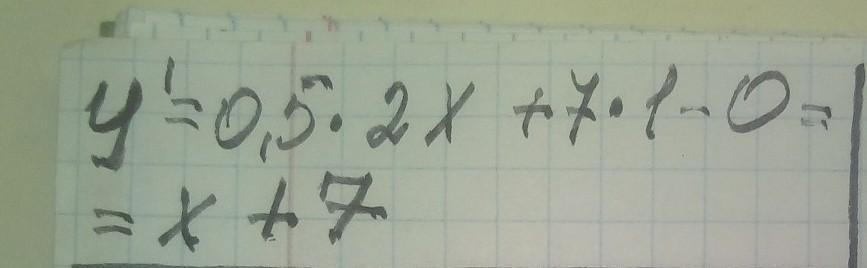 y' = 0,5 · 2x + 7 · 1 - 0 =
= x + 7